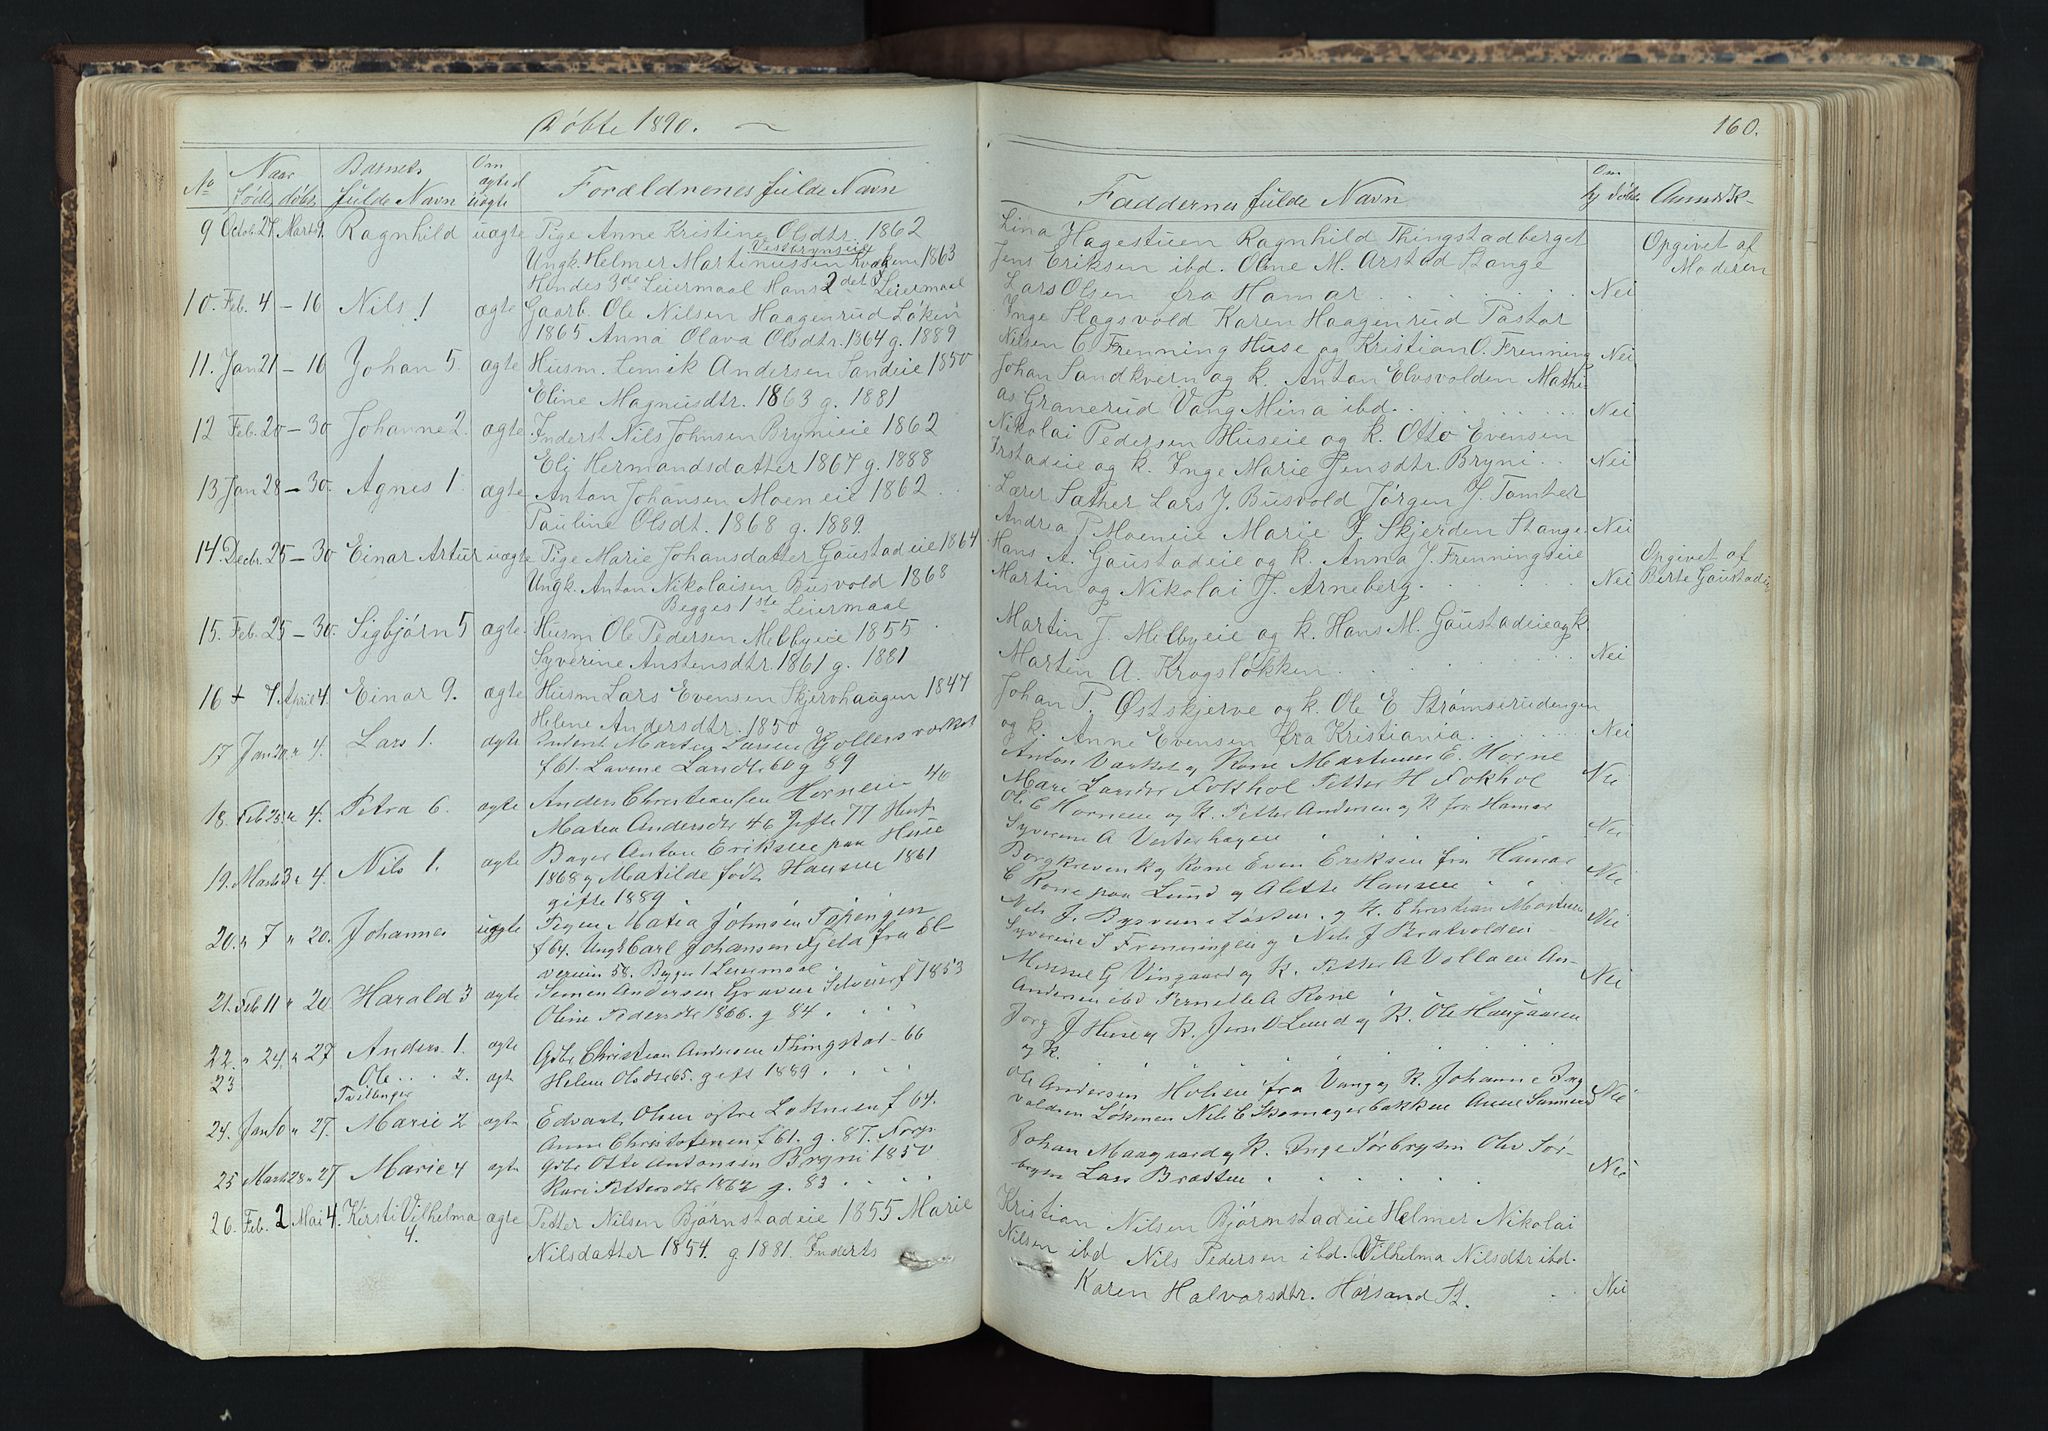 Døbte 1890.
160.
No
Naar
født døbt
Barnets
fulde Navn
Om
ægte el
uægte
Forældrenes fulde Navn
Faddernes fulde Navn
Om
hj døbt
Anmærk-
9 Octob. 27 Marts 9. Ragnhild uægte Pige Anne Kristine Olsdtr. 1862
Vestbrynseie
Ungk. Helmer Martinussen 1863
Hendes 3de Leiermaal Hans 2det Leiermaal
Lina Hagestuen Ragnhild Thingstadberget
Jens Eriksen ibd. Oline M. Arstad Stange
Lars Olsen fra Hamar Nei
Opgivet af
Moderen
10. Feb. 4 - 16 Nils 1 ægte Gaarb. Ole Nilsen Haagenrud Løken
1865 Anna Olava Olsdtr. 1864 g. 1889
Inge Slagsvold Karen Haagenrud Pastor
Nilsen C. Frenning Huse og Kristian O. Frenning Nei
11. Jan 21 - 16 Johan 5. ægte Husm. Lenik Andersen Sandeie 1850
Eline Magnusdtr. 1863 g. 1881
Johan Sandkvern og k. Anton Elvsvolden Mathi-
as Granerud Vang Mina ibd. Nei
12 Feb. 20 - 30 Johanne 2. ægte Inderst Nils Johnsen Brynieie 1862
Eli Hermandsdatter 1867 g. 1888
Nikolai Pedersen Huseie og k. Otto Evensen
Irstadeie og k. Inge Marie Jensdtr. Bryni Nei
13 Jan 28 - 30. Agnes 1. ægte Anton Johansen Moeneie 1862
Pauline Olsdt. 1868 g. 1889.
Lærer Sæther Lars J. Busvold Jørgen J. Tomter
Andrea P Moeneie Marie J Skjerden Stange Nei
14. Decbr. 25 - 30 Einar Artur uægte Pige Marie Johansdatter Gaustadeie 1864
Ungk. Anton Nikolaisen Busvold 1868
Begges 1ste Leiermaal
Hans A. Gaustadeie og k. Anna J. Frenningseie
Martin og Nikolai J. Arneberg. Nei
Opgivet af
Berte Gaustadeie
15. Feb. 25 - 30. Sigbjørn 5 ægte Husm Ole Pedersen Melbyeie 1855
Syverine Anstensdtr. 1861 g. 1881
Martin J. Melbyeie og k. Hans M. Gaustadeie og k.
Martin A. Krogsløkken Nei
16 + 7 April 4. Einar 9. ægte Husm Lars Evensen Skjervhaagen 1847
Helene Andersdtr. 1850 g
Johan P. Østskjerve og k. Ole E Strømserudengen
og k. Anne Evensen fra Kristiania Nei
17 Jan 20 " 4. Lars 1. ægte Inderst Morten Larsen
f 61. Lavine Larsdtr 60 g 89
Anton Varket og Kone Martinus E. Horne
Mari Larsdtr Fokhol Petter H Fokhol Nei
18. Feb 23 " 4. Petra 6. ægte Anders Christiansen Horneeie 40
Matea Andersdtr 46 gifte 77 Husm
Ole E Horneeie og K. Petter Andersen og K fra Hamar
Syverine A Vesterhagen Nei
19. Marts 3 " 4. Nils 1. ægte Bager Anton Eriksen paa Huse
1868 og Matilde født Hansen 1861
gifte 1889
Borgkreven K og Kone Even Eriksen fra Hamar
E Rone paa Lund og Alette Hansen Nei
20. " 7 " 20. Johannes uægte Pigen Matea Johnsen
f 64. Ungk Carl Johansen Fjeld fra El-
verum 58. Begges 1 Leiermaal
Nils J. og K. Christian
Syverine S Frenningeie og Nils J Bratvolden Nei
21. Feb 11 " 20. Harald 3 ægte Simen Andersen Graven Selveier f 1853
Oline Pedersdtr 1866. g 84
Mikkel G Vingaard og K. Petter A Vollaeie An-
Andersen ibd Pernille A Rone Nei
22. " 24 " 27 Anders 1. ægte Gbr Christian Andersen Thingstad 66
23 Ole 2. ægte Helene Olsdtr 65. gift 1889
Tvillinger
Jørg J Huse og K. Jens O Lund og K. Ole Haugaasen
og K.
24. Jan 10 " 27. Marie 2 ægte Edvart Olsen østre Løkenen f 64.
Anne Christofersen f 61. g. 87.
Ole Andersen Holseie fra Vang og K. Johanne Ing
valdsen Løkenen Nils E Skomagerbakken Anne Nei
25 Marts 28 " 27 Marie 4 ægte Gbr Otto Antonsen Bryni 1850
Kari Pettersdtr 1862 g. 83
Johan Maagaard og K. Inge Sørbryni Olav Sør-
bryni Lars Bratten Nei
26. Feb. 2 Mai 4. Kersti Vilhelma ægte Petter Nilsen Bjørnstadeie 1855 Marie
4.
Nilsdatter 1854. g 1881. Inderts
Kristian Nilsen Bjørnstadeie Helmer Nikolai
Nilsen ibd Nils Pedersen ibd. Vilhelma Nilsdtr ibd.
Karen Halvorsdtr. Horsand St. Nei